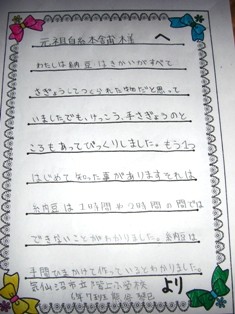 元祖自然本舗 様 へ
わたしは納豆はきかいがすべて
さぎょうしてつくられた物だと思って
いましたでも、けっこう、手さぎょうのと
ころもあってびっくりしました。もう1つ
はじめて知った事がありますそれは
納豆は1時間や2時間の間では
できないことがわかりました。納豆は
手間ひまかけて作っているとわかりました。
気仙沼市立階上小学校
より